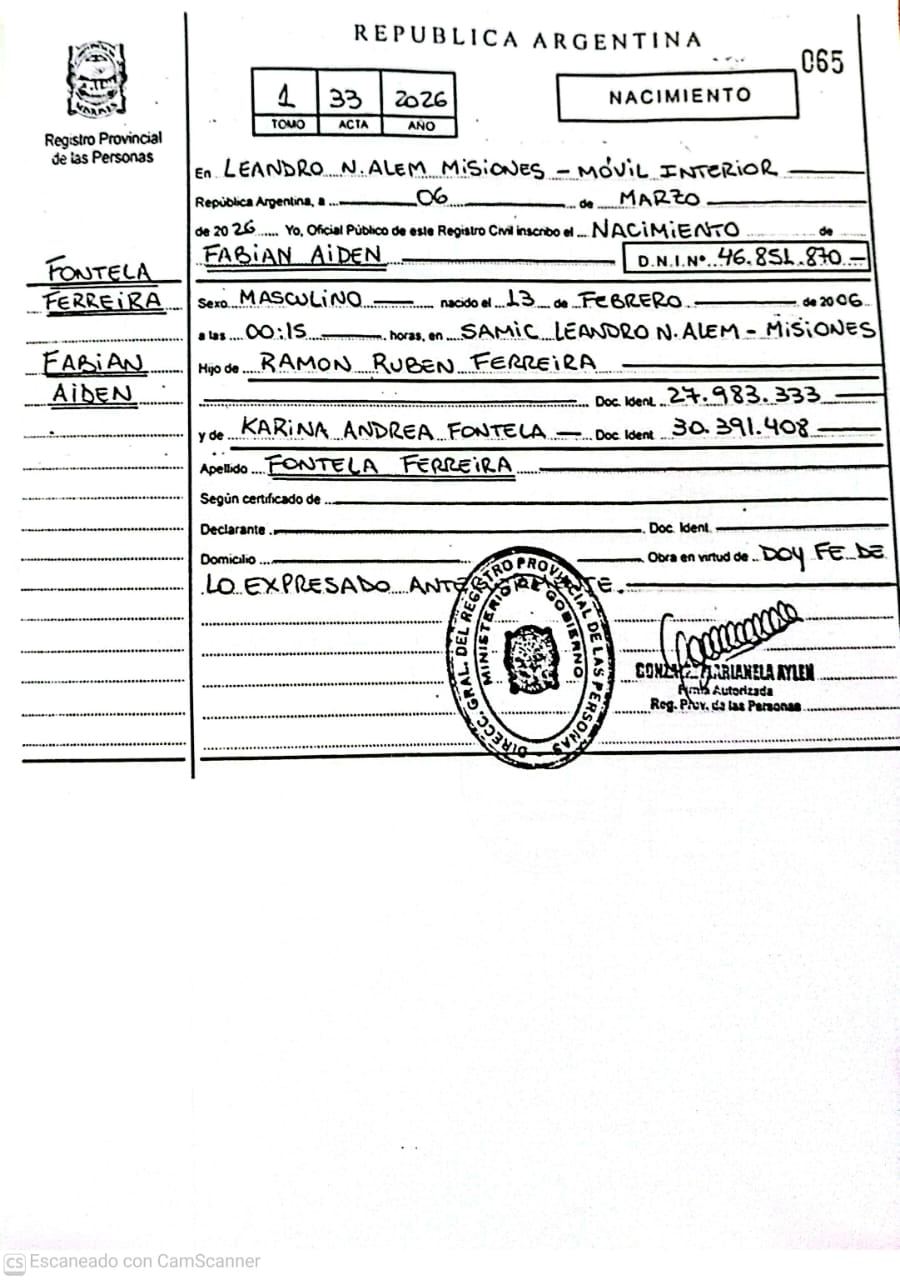 REPUBLICA ARGENTINA
065
1 33 2026
TOMO ACTA AÑO
NACIMIENTO
Registro Provincial
de las Personas
En LEANDRO N. ALEM MISIONES - MÓVIL INTERIOR
República Argentina, a 06 de MARZO
de 2026 Yo, Oficial Público de este Registro Civil inscribo el NACIMIENTO de
FABIAN AIDEN D.N.I.Nº 46.851.870
FONTELA
FERREIRA
FABIAN
AIDEN
Sexo MASCULINO nacido el 13 de FEBRERO de 2006
a las 00:15 horas, en SAMIC LEANDRO N. ALEM - MISIONES
Hijo de RAMON RUBEN FERREIRA
Doc. Ident. 27.983.333
y de KARINA ANDREA FONTELA Doc. Ident 30.391.408
Apellido FONTELA FERREIRA
Según certificado de
Declarante Doc. Ident.
Domicilio Obra en virtud de DOY FE DE
LO EXPRESADO
DIRECC. GRAL. DEL REGISTRO PROVINCIAL DE LAS PERSONAS
MINISTERIO DE GOBIERNO
MARIANELA AYLEN
Firma Autorizada
Reg. Prov. de las Personas
CS Escaneado con CamScanner